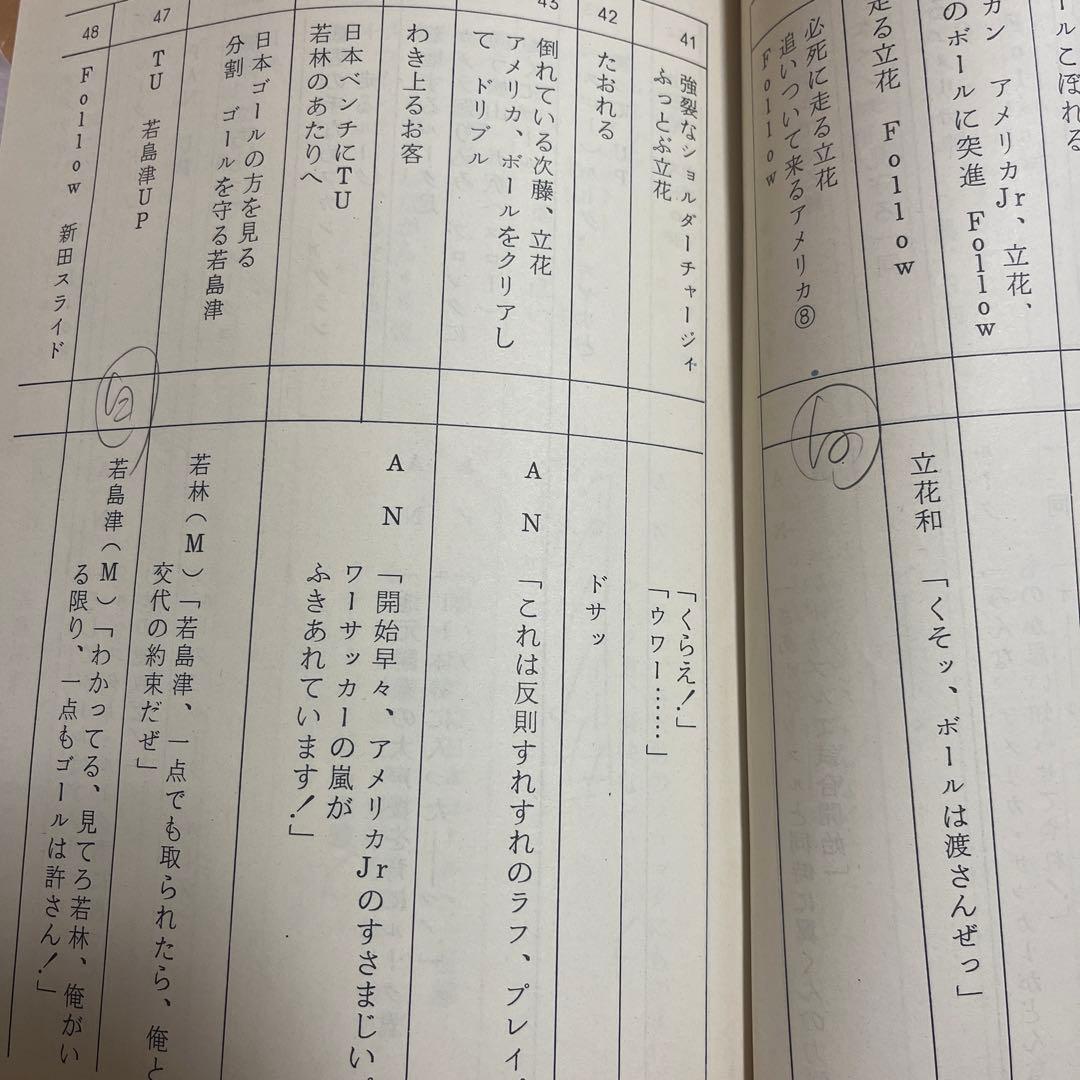 ルこぼれる
カン アメリカJr、立花、
のボールに突進 Follow
走る立花 Follow
必死に走る立花
追いついて来るアメリカ⑧
Follow
立花和 「くそッ、ボールは渡さんぜっ」
41
強裂なショルダーチャージィ
ふっとぶ立花
「くらえ!」
「ゥワー……」
42
たおれる
ドサッ
43
倒れている次藤、立花
アメリカ、ボールをクリアし
て ドリブル
AN 「これは反則すれすれのラフ、プレイ。
わき上るお客
AN 「開始早々、アメリカJrのすさまじい。
ワーサッカーの嵐が
ふきあれています!」
日本ベンチにTU
若林のあたりへ
日本ゴールの方を見る
分割 ゴールを守る若島津
若林(M)「若島津、一点でも取られたら、俺と
交代の約束だぜ」
47
TU 若島津UP
若島津(M)「わかってる、見てろ若林、俺がい
る限り、一点もゴールは許さん!」
48
Follow 新田スライド